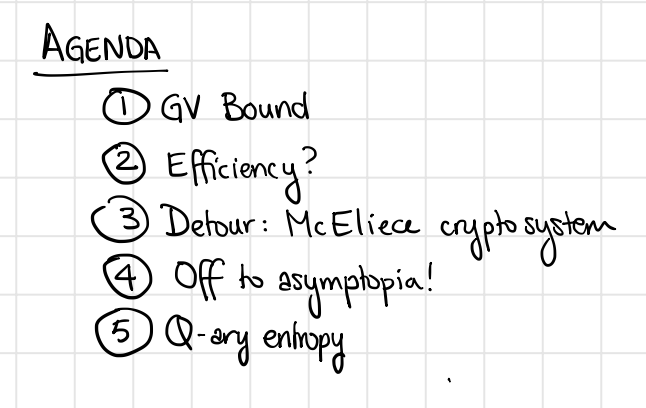 AGENDA
① GV Bound
② Efficiency?
③ Detour: McEliece cryptosystem
④ Off to asymptopia!
⑤ Q-ary entropy